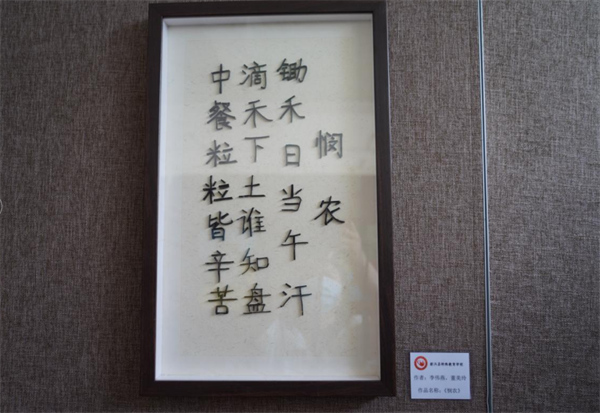 悯农
锄禾日当午汗
滴禾下土谁知盘
中餐粒粒皆辛苦
作者：
作品名称：《悯农》